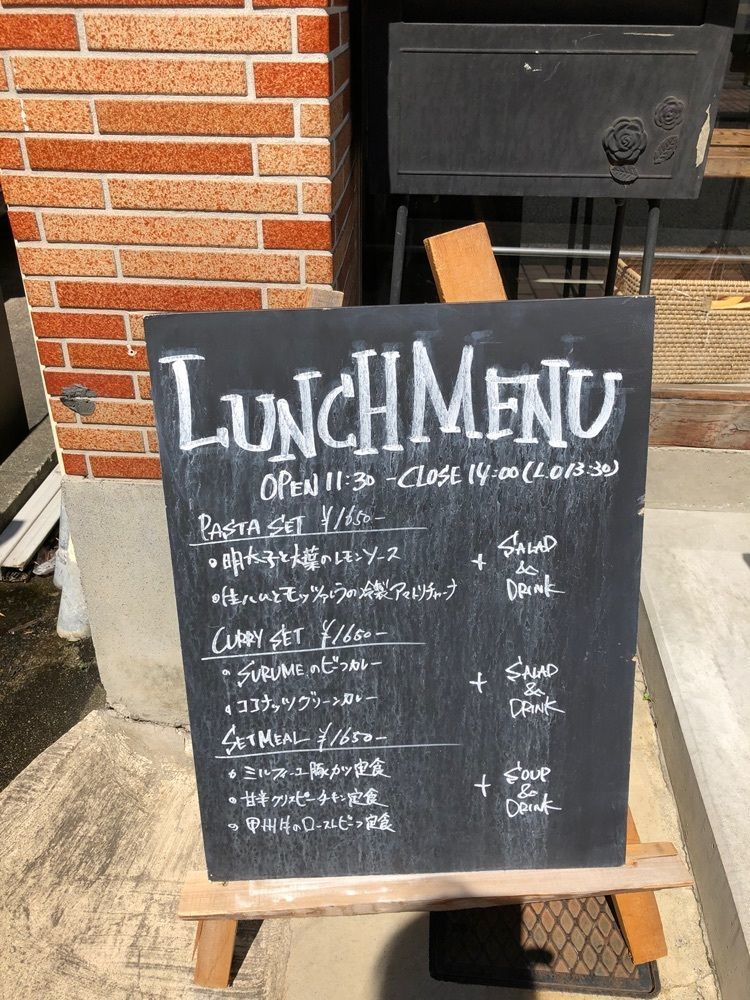 LUNCH MENU
OPEN 11:30 - CLOSE 14:00 (L.O 13:30)
PASTA SET ¥1650-
・明太子と大葉のレモンソース
・生ハムとモッツァレラの冷製アマトリチャーナ
+ SALAD
&
DRINK
CURRY SET ¥1650-
・SURUMEのビーフカレー
・ココナッツグリーンカレー
+ SALAD
&
DRINK
SET MEAL ¥1650-
・ミルフィーユ豚カツ定食
・甘辛クリスピーチキン定食
・甲州牛のローストビーフ定食
+ SOUP
&
DRINK